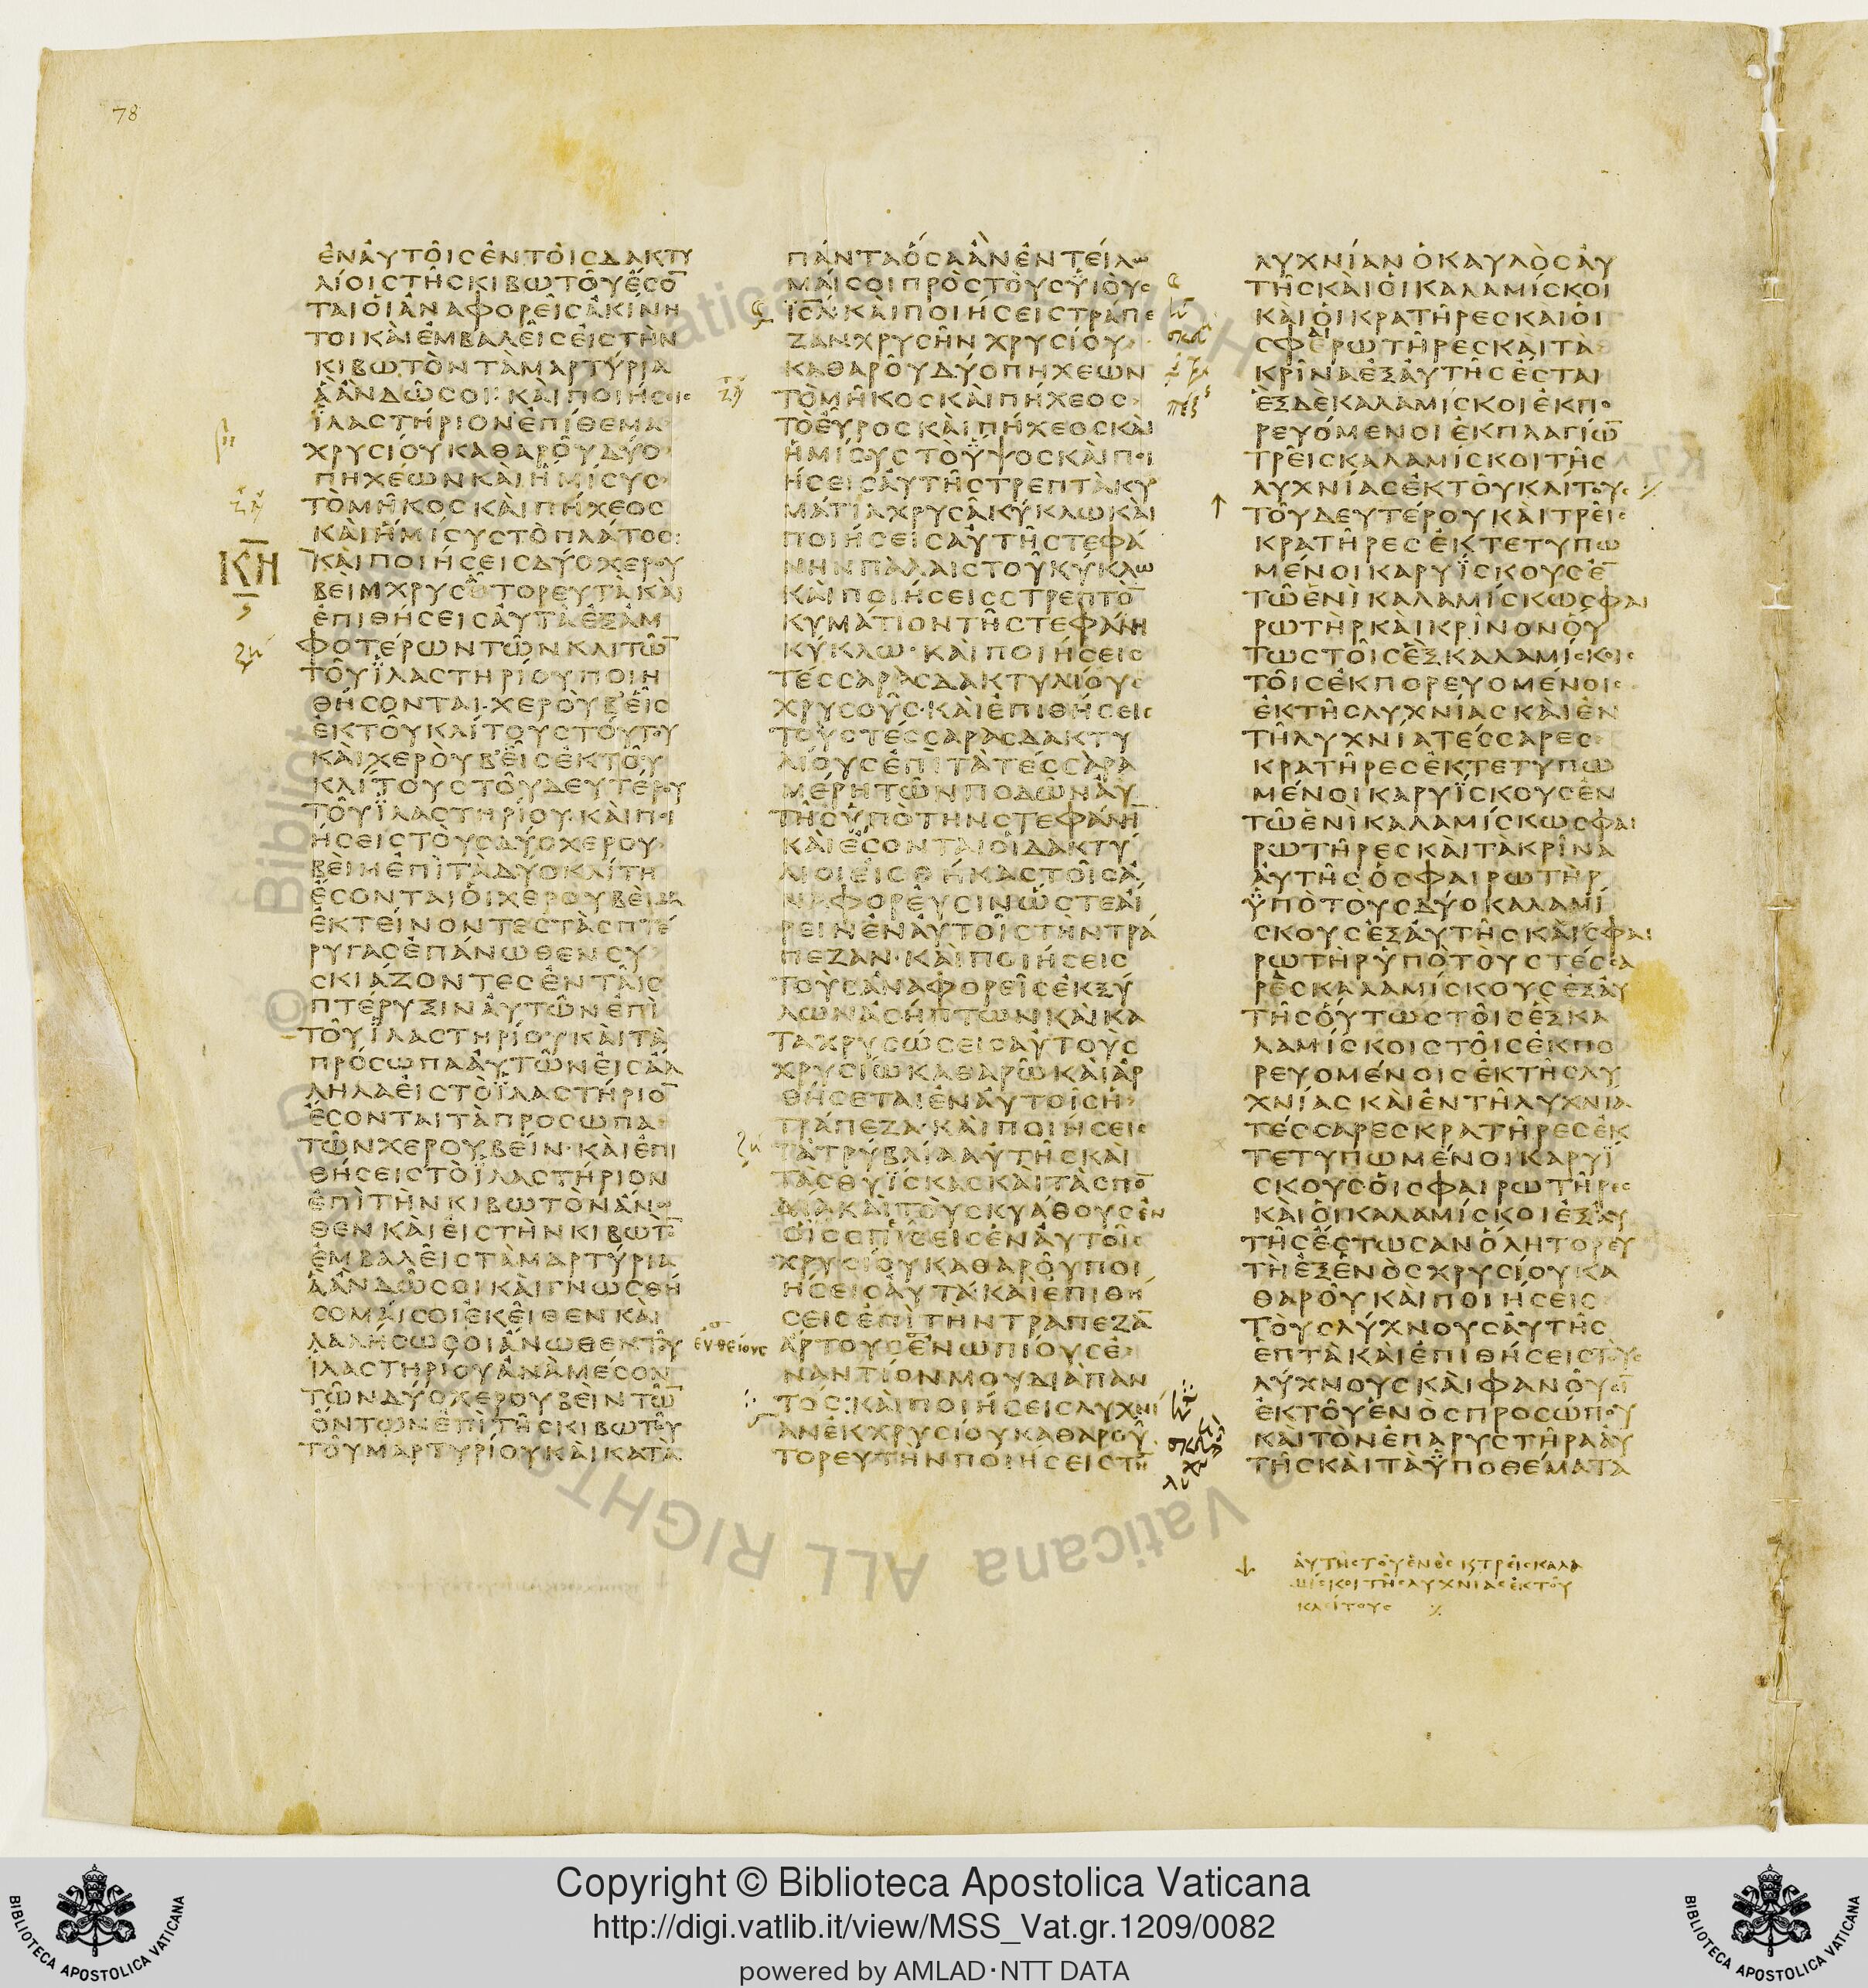 78
ἐν αὐτοῖς ἐν τοῖς δακτυ
λίοις τῆς κιβωτοῦ ἔσο̅
ται οἱ ἀναφορεῖς ἀκίνη
τοι καὶ ἐμβαλεῖς εἰς τὴν
κιβωτὸν τὰ μαρτύρια
ἃ ἂν δῶ σοι· καὶ ποιήσεις
ἱλαστήριον ἐπίθεμα
χρυσίου καθαροῦ δύο
πήχεων καὶ ἡμίσυς
τὸ μῆκος καὶ πήχεος
καὶ ἡμίσυς τὸ πλάτος:
ΚΗ
καὶ ποιήσεις δύο χερου
βεὶμ χρυσᾶ τορευτὰ καὶ
ἐπιθήσεις αὐτὰ ἐξ ἀμ
φοτέρων τῶν κλιτῶ̅
τοῦ ἱλαστηρίου ποιη
θήσονται· χεροὺβ εἷς
ἐκ τοῦ κλίτους τούτου
καὶ χεροὺβ εἷς ἐκ τοῦ
κλίτους τοῦ δευτέρου
τοῦ ἱλαστηρίου· καὶ ποι
ήσεις τοὺς δύο χερου
βεὶν ἐπὶ τὰ δύο κλίτη
ἔσονται οἱ χερουβεὶμ
ἐκτείνοντες τὰς πτέ
ρυγας ἐπάνωθεν συ
σκιάζοντες ἐν ταῖς
πτέρυξιν αὐτῶν ἐπὶ
τοῦ ἱλαστηρίου καὶ τὰ
πρόσωπα αὐτῶν εἰς ἄλ
ληλα εἰς τὸ ἱλαστήριο̅
ἔσονται τὰ πρόσωπα
τῶν χερουβείν· καὶ ἐπι
θήσεις τὸ ἱλαστήριον
ἐπὶ τὴν κιβωτὸν ἄνω
θεν καὶ εἰς τὴν κιβωτὸ̅
ἐμβαλεῖς τὰ μαρτύρια
ἃ ἂν δῶ σοι καὶ γνωσθή
σομαί σοι ἐκεῖθεν καὶ
λαλήσω σοι ἄνωθεν τοῦ
ἱλαστηρίου ἀνὰ μέσον
τῶν δύο χερουβεὶν τῶ̅
ὄντων ἐπὶ τῆς κιβωτοῦ
τοῦ μαρτυρίου καὶ κατὰ
πάντα ὅσα ἂν ἐντείλω
μαί σοι πρὸς τοὺς υἱοὺς
ι̅σ̅λ̅· καὶ ποιήσεις τράπε
ζαν χρυσῆν χρυσίου
καθαροῦ δύο πήχεων
τὸ μῆκος καὶ πήχεος
τὸ εὖρος καὶ πήχεος καὶ
ἡμίσους τὸ ὕψος καὶ ποι
ήσεις αὐτῇ στρεπτὰ κυ
μάτια χρυσᾶ κύκλω καὶ
ποιήσεις αὐτῇ στεφά
νην παλαιστοῦ κύκλω
καὶ ποιήσεις στρεπτὸ̅
κυμάτιον τῇ στεφάνη
κύκλω· καὶ ποιήσεις
τέσσαρας δακτυλίους
χρυσοῦς· καὶ ἐπιθήσεις
τοὺς τέσσαρας δακτυ
λίους ἐπὶ τὰ τέσσαρα
μέρη τῶν ποδῶν αὐ
τῆς ὑπὸ τὴν στεφάνη̅
καὶ ἔσονται οἱ δακτύ
λιοι εἰς θήκας τοῖς ἀ
ναφορεῦσιν ὥστε αἴ
ρειν ἐν αὐτοῖς τὴν τρά
πεζαν· καὶ ποιήσεις
τοὺς ἀναφορεῖς ἐκ ξύ
λων ἀσήπτων καὶ κα
ταχρυσώσεις αὐτοὺς
χρυσίω καθαρῶ καὶ ἀρ
θήσεται ἐν αὐτοῖς ἡ
τράπεζα· καὶ ποιήσεις
τὰ τρύβλια αὐτῆς καὶ
τὰς θυίσκας καὶ τὰ σπο̅
δῖα καὶ τοὺς κυάθους ἐν
οἷς σπίσεις ἐν αὐτοῖς
χρυσίου καθαροῦ ποι
ήσεις αὐτά· καὶ ἐπιθή
σεις ἐπὶ τὴν τράπεζα̅
ἄρτους ἐνωπίους ἐ
ναντίον μου διὰ παν
τός: καὶ ποιήσεις λυχνί
αν ἐκ χρυσίου καθαροῦ
τορευτὴν ποιήσεις τὴ̅
λυχνίαν ὁ καυλὸς αὐ
τῆς καὶ οἱ καλαμίσκοι
καὶ οἱ κρατῆρες καὶ οἱ
σφαιρωτῆρες καὶ τὰ
κρίνα ἐξ αὐτῆς ἔσται
ἓξ δὲ καλαμίσκοι ἐκπο
ρευόμενοι ἐκ πλαγίω̅
τρεῖς καλαμίσκοι τῆς
λυχνίας ἐκ τοῦ κλίτους
τοῦ δευτέρου καὶ τρεῖς
κρατῆρες ἐκτετυπω
μένοι καρυΐσκους ἐ̅
τῶ ἑνὶ καλαμίσκω σφαι
ρωτὴρ καὶ κρίνον οὕ
τως τοῖς ἓξ καλαμίσκοις
τοῖς ἐκπορευομένοις
ἐκ τῆς λυχνίας καὶ ἐν
τῇ λυχνία τέσσαρες
κρατῆρες ἐκτετυπω
μένοι καρυΐσκους ἐν
τῶ ἑνὶ καλαμίσκω σφαι
ρωτῆρες καὶ τὰ κρίνα
αὐτῆς ὁ σφαιρωτὴρ
ὑπὸ τοὺς δύο καλαμί
σκους ἐξ αὐτῆς καὶ σφαι
ρωτὴρ ὑπὸ τοὺς τέσσα
ρες καλαμίσκους ἐξ αὐ
τῆς οὕτως τοῖς ἓξ κα
λαμίσκοις τοῖς ἐκπο
ρευομένοις ἐκ τῆς λυ
χνίας καὶ ἐν τῇ λυχνία
τέσσαρες κρατῆρες ἐκ
τετυπωμένοι καρυΐ
σκους οἱ σφαιρωτῆρες
καὶ οἱ καλαμίσκοι ἐξ αὐ
τῆς ἔστωσαν ὅλη τορευ
τὴ ἐξ ἑνὸς χρυσίου κα
θαροῦ καὶ ποιήσεις
τοὺς λύχνους αὐτῆς
ἑπτὰ καὶ ἐπιθήσεις τοὺς
λύχνους καὶ φανοῦσι̅
ἐκ τοῦ ἑνὸς προσώπου
καὶ τὸν ἐπαρυστῆρα αὐ
τῆς καὶ τὰ ὑποθέματα
αὐτῆς τοῦ ἑνὸς ϗ τρεῖς καλα
μίσκοι τῆς λυχνίας ἐκ τοῦ
κλίτους
Copyright © Biblioteca Apostolica Vaticana
http://digi.vatlib.it/view/MSS_Vat.gr.1209/0082
powered by AMLAD·NTT DATA
BIBLIOTECA APOSTOLICA VATICANA
BIBLIOTECA APOSTOLICA VATICANA